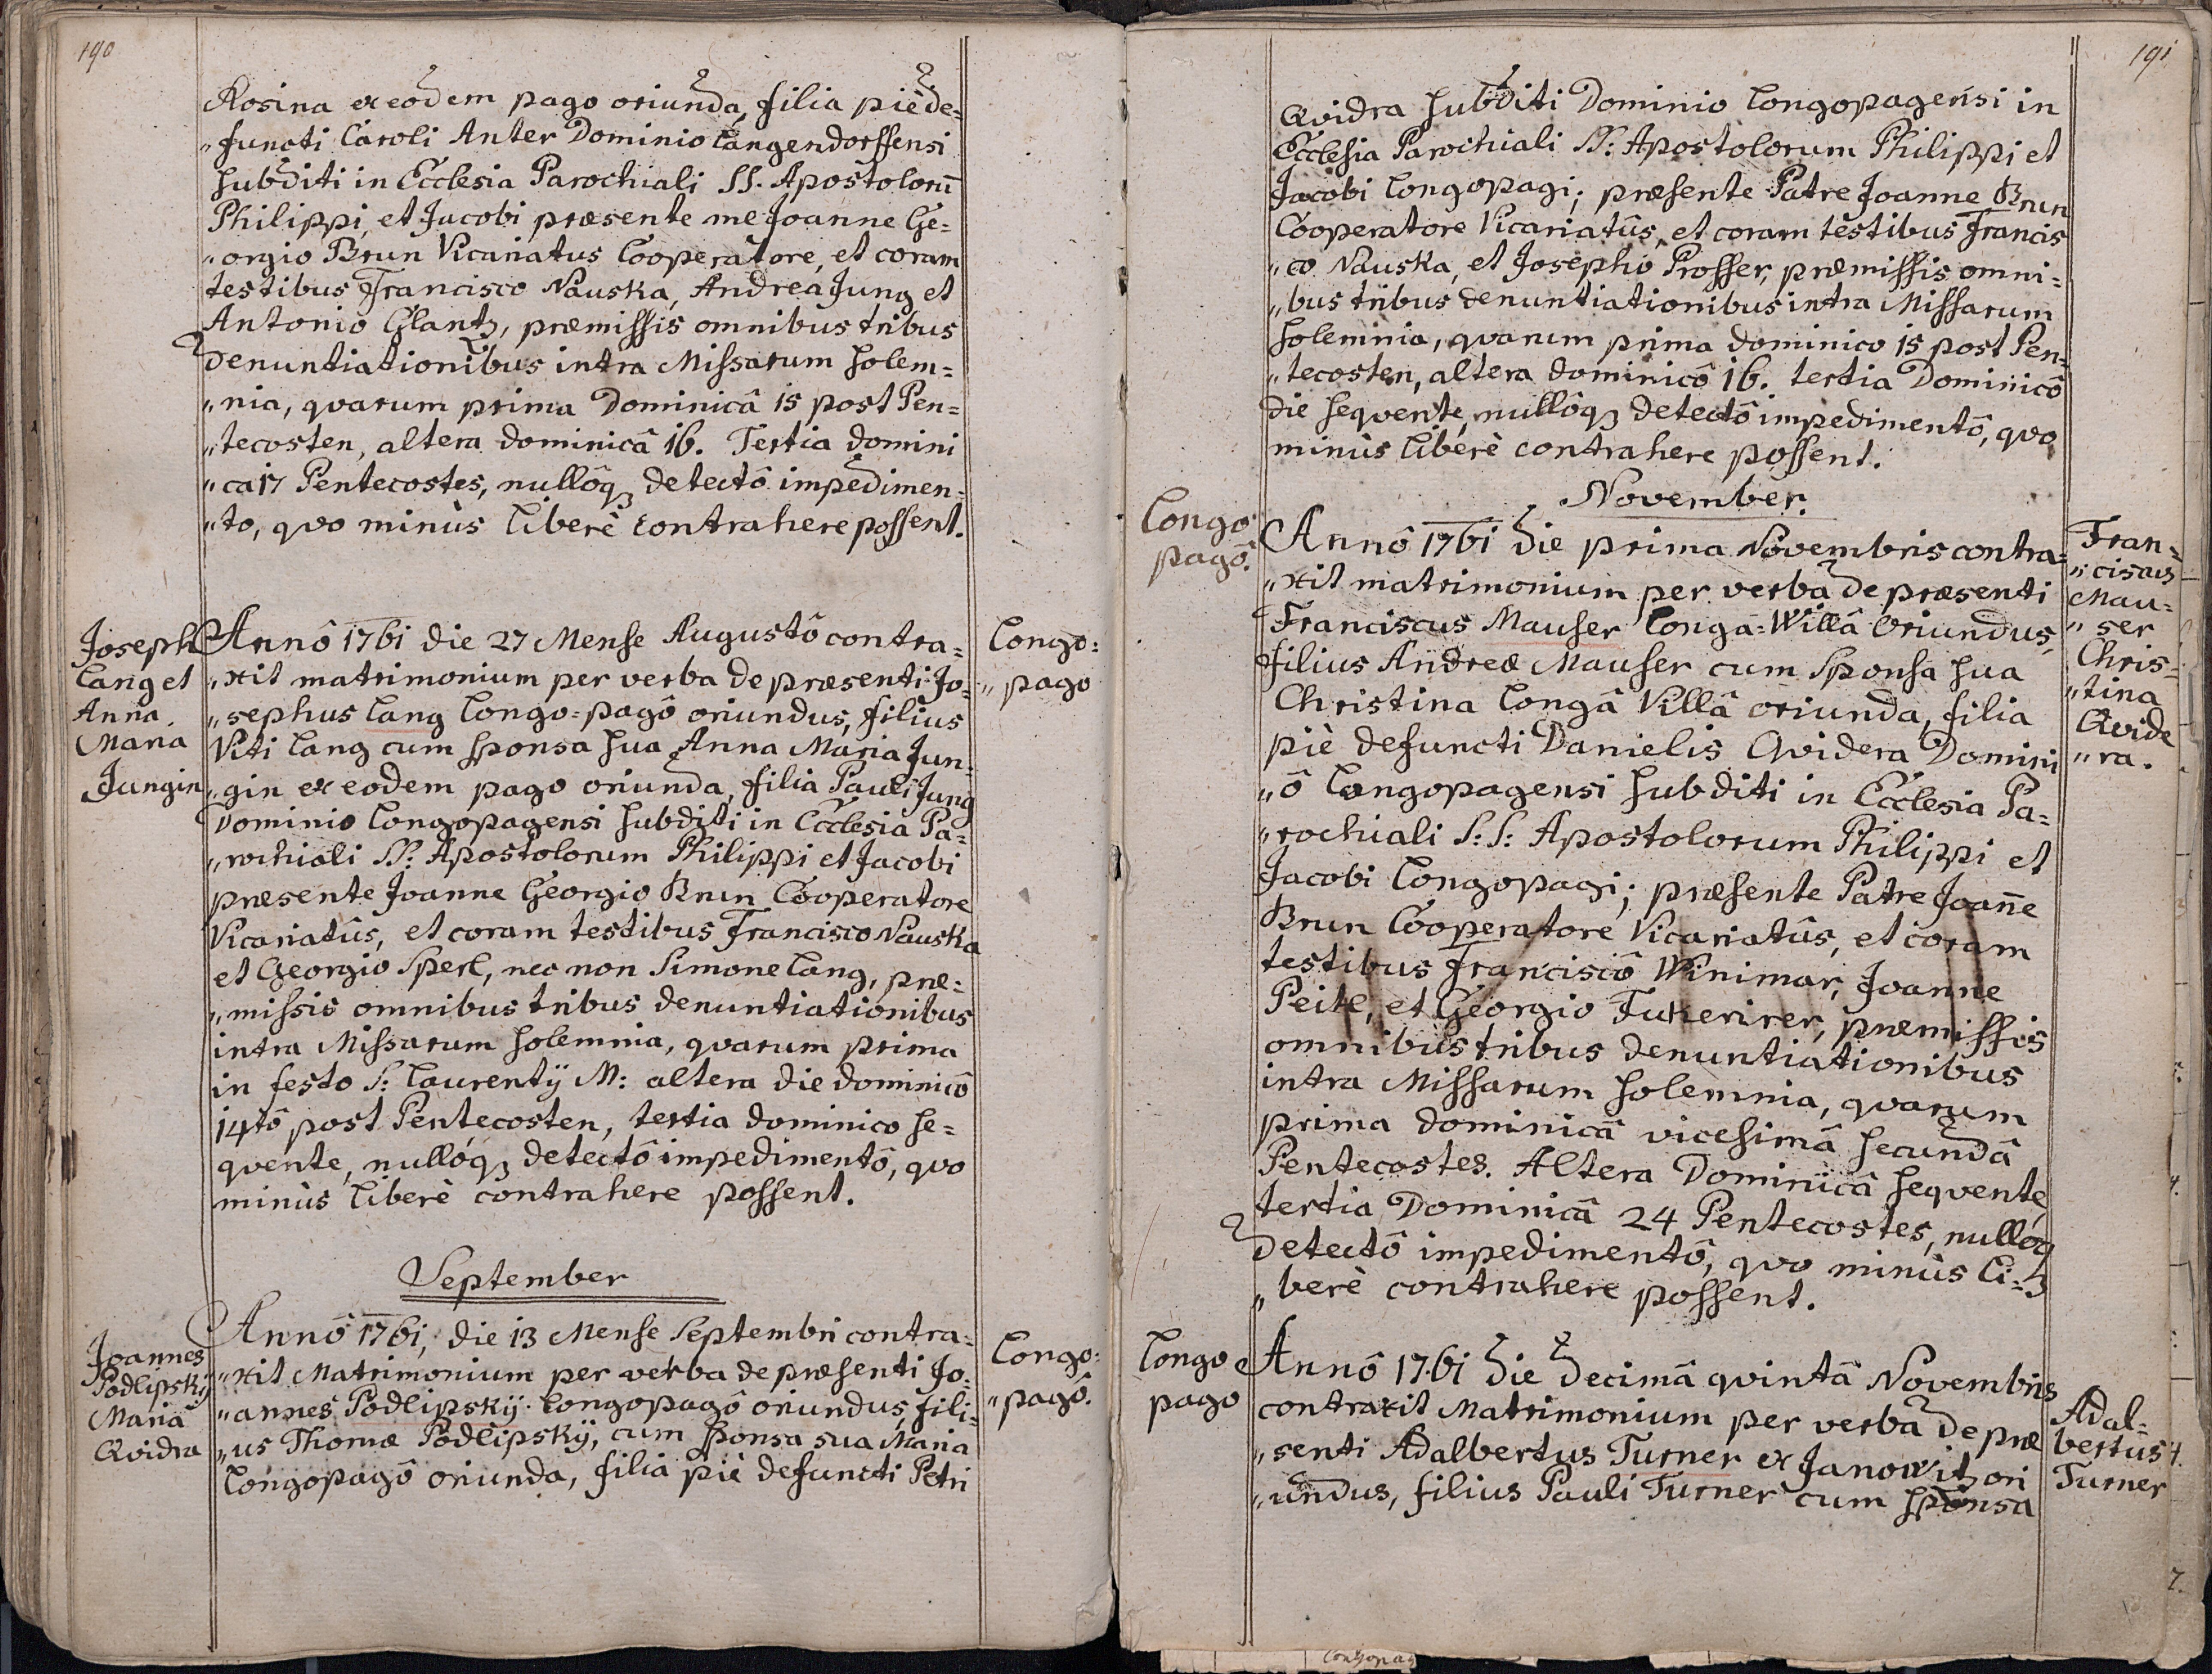 190
Rosina ex eodem pago oriunda, filia piè de=
"functi Caroli Anter Dominio Langendorffensi
subditi in Ecclesia Parochiali SS. Apostolorū
Philippi, et Jacobi præsente me Joanne Ge=
"orgio Brun Vicariatus Cooperatore, et coram
testibus Francisco Nauska, Andrea Jung et
Antonio Glantz, præmissis omnibus tribus
denuntiationibus intra Missarum solem=
"nia, qvarum prima Dominicâ 15 post Pen=
"tecosten, altera dominicâ 16. Tertia domini
"ca 17 Pentecostes, nullôqꝫ detectô impedimen=
"to, qvo minùs liberè contrahere possent.
Joseph
Lang et
Anna
Maria
Jungin
Annô 1761 die 27 Mense Augustô contra=
"xit matrimonium per verba de præsenti Jo=
"sephus Lang Longo=pagô oriundus, filius
Viti Lang cum sponsa sua Anna Maria Jun=
"gin ex eodem pago oriunda, filia Pauli Jung
Dominio Longopagensi subditi in Ecclesia Pa=
"rochiali SS: Apostolorum Philippi et Jacobi
præsente Joanne Georgio Brun Cooperatore
Vicariatûs, et coram testibus Francisco Nauska
et Georgio Sperl, nec non Simone Lang, præ=
"missis omnibus tribus denuntiationibus
intra Missarum solemnia, qvarum prima
in festo S: Laurentÿ M: altera die dominicô
14tô post Pentecosten, tertia dominico se=
qvente, nullóqꝫ detectô impedimentô, qvo
minùs liberè contrahere possent.
Longo=
"pago
September
Joannes
Podlipskÿ
Maria
Qvidra
Annô 1761, die 13 Mense Septembri contra=
"xit Matrimonium per verba de præsenti Jo=
"annes Podlipskÿ Longopagô oriundus, fili=
"us Thomæ Podlipskÿ, cum sponsa sua Maria
Longopagô oriunda, filia piè defuncti Petri
Longo=
"pagô.
191
Qvidra subditi Dominio Longopagensi in
Ecclesia Parochiali SS: Apostolorum Philippi et
Jacobi Longopagi; præsente Patre Joanne Brun
Cooperatore Vicariatûs, et coram testibus Francis
"co Nauska, et Josepho Prosser, præmissis omni=
"bus tribus denuntiationibus intra Missarum
solemnia, qvarum prima dominico 15 post Pen=
"tecosten, altera dominicô 16. tertia Dominicô
die seqvente, nullôqꝫ detectô impedimentô, qvo
minùs liberè contrahere possent.
November.
Longo
pagô.
Annô 1761 die prima Novembris contra=
"xit matrimonium per verba de præsenti
Franciscus Mauser Longa=Willâ Oriundus,
filius Andreæ Mauser cum Sponsa sua
Christina Longâ Villâ oriunda, filia
piè defuncti Danielis Qvidera Domini
"ô Longopagensi subditi in Ecclesia Pa=
"rochiali S: S: Apostolorum Philippi et
Jacobi Longopagi; præsente Patre Joan̄e
Brun Cooperatore Vicariatûs, et coram
testibus Franciscô Winimar, Joanne
Peitl, et Georgio præmissis
omnibus tribus denuntiationibus
intra Missarum solemnia, qvarum
prima dominicâ vicesimâ secundâ
Pentecostes. Altera Dominicâ seqvente,
tertia Dominicâ 24 Pentecostes, nullóqꝫ
detectô impedimentô, qvo minùs li=
"berè contrahere possent.
Fran=
"ciscus
Mau=
"ser
Chris=
"tina
Qvide
"ra.
Longo
pago
Annô 1761 die decimâ qvintâ Novembris
contraxit Matrimonium per verba de præ
"senti Adalbertus Turner ex Janowitz ori
"undus, filius Pauli Turner cum sponsa
Adal=
bertus
Turner